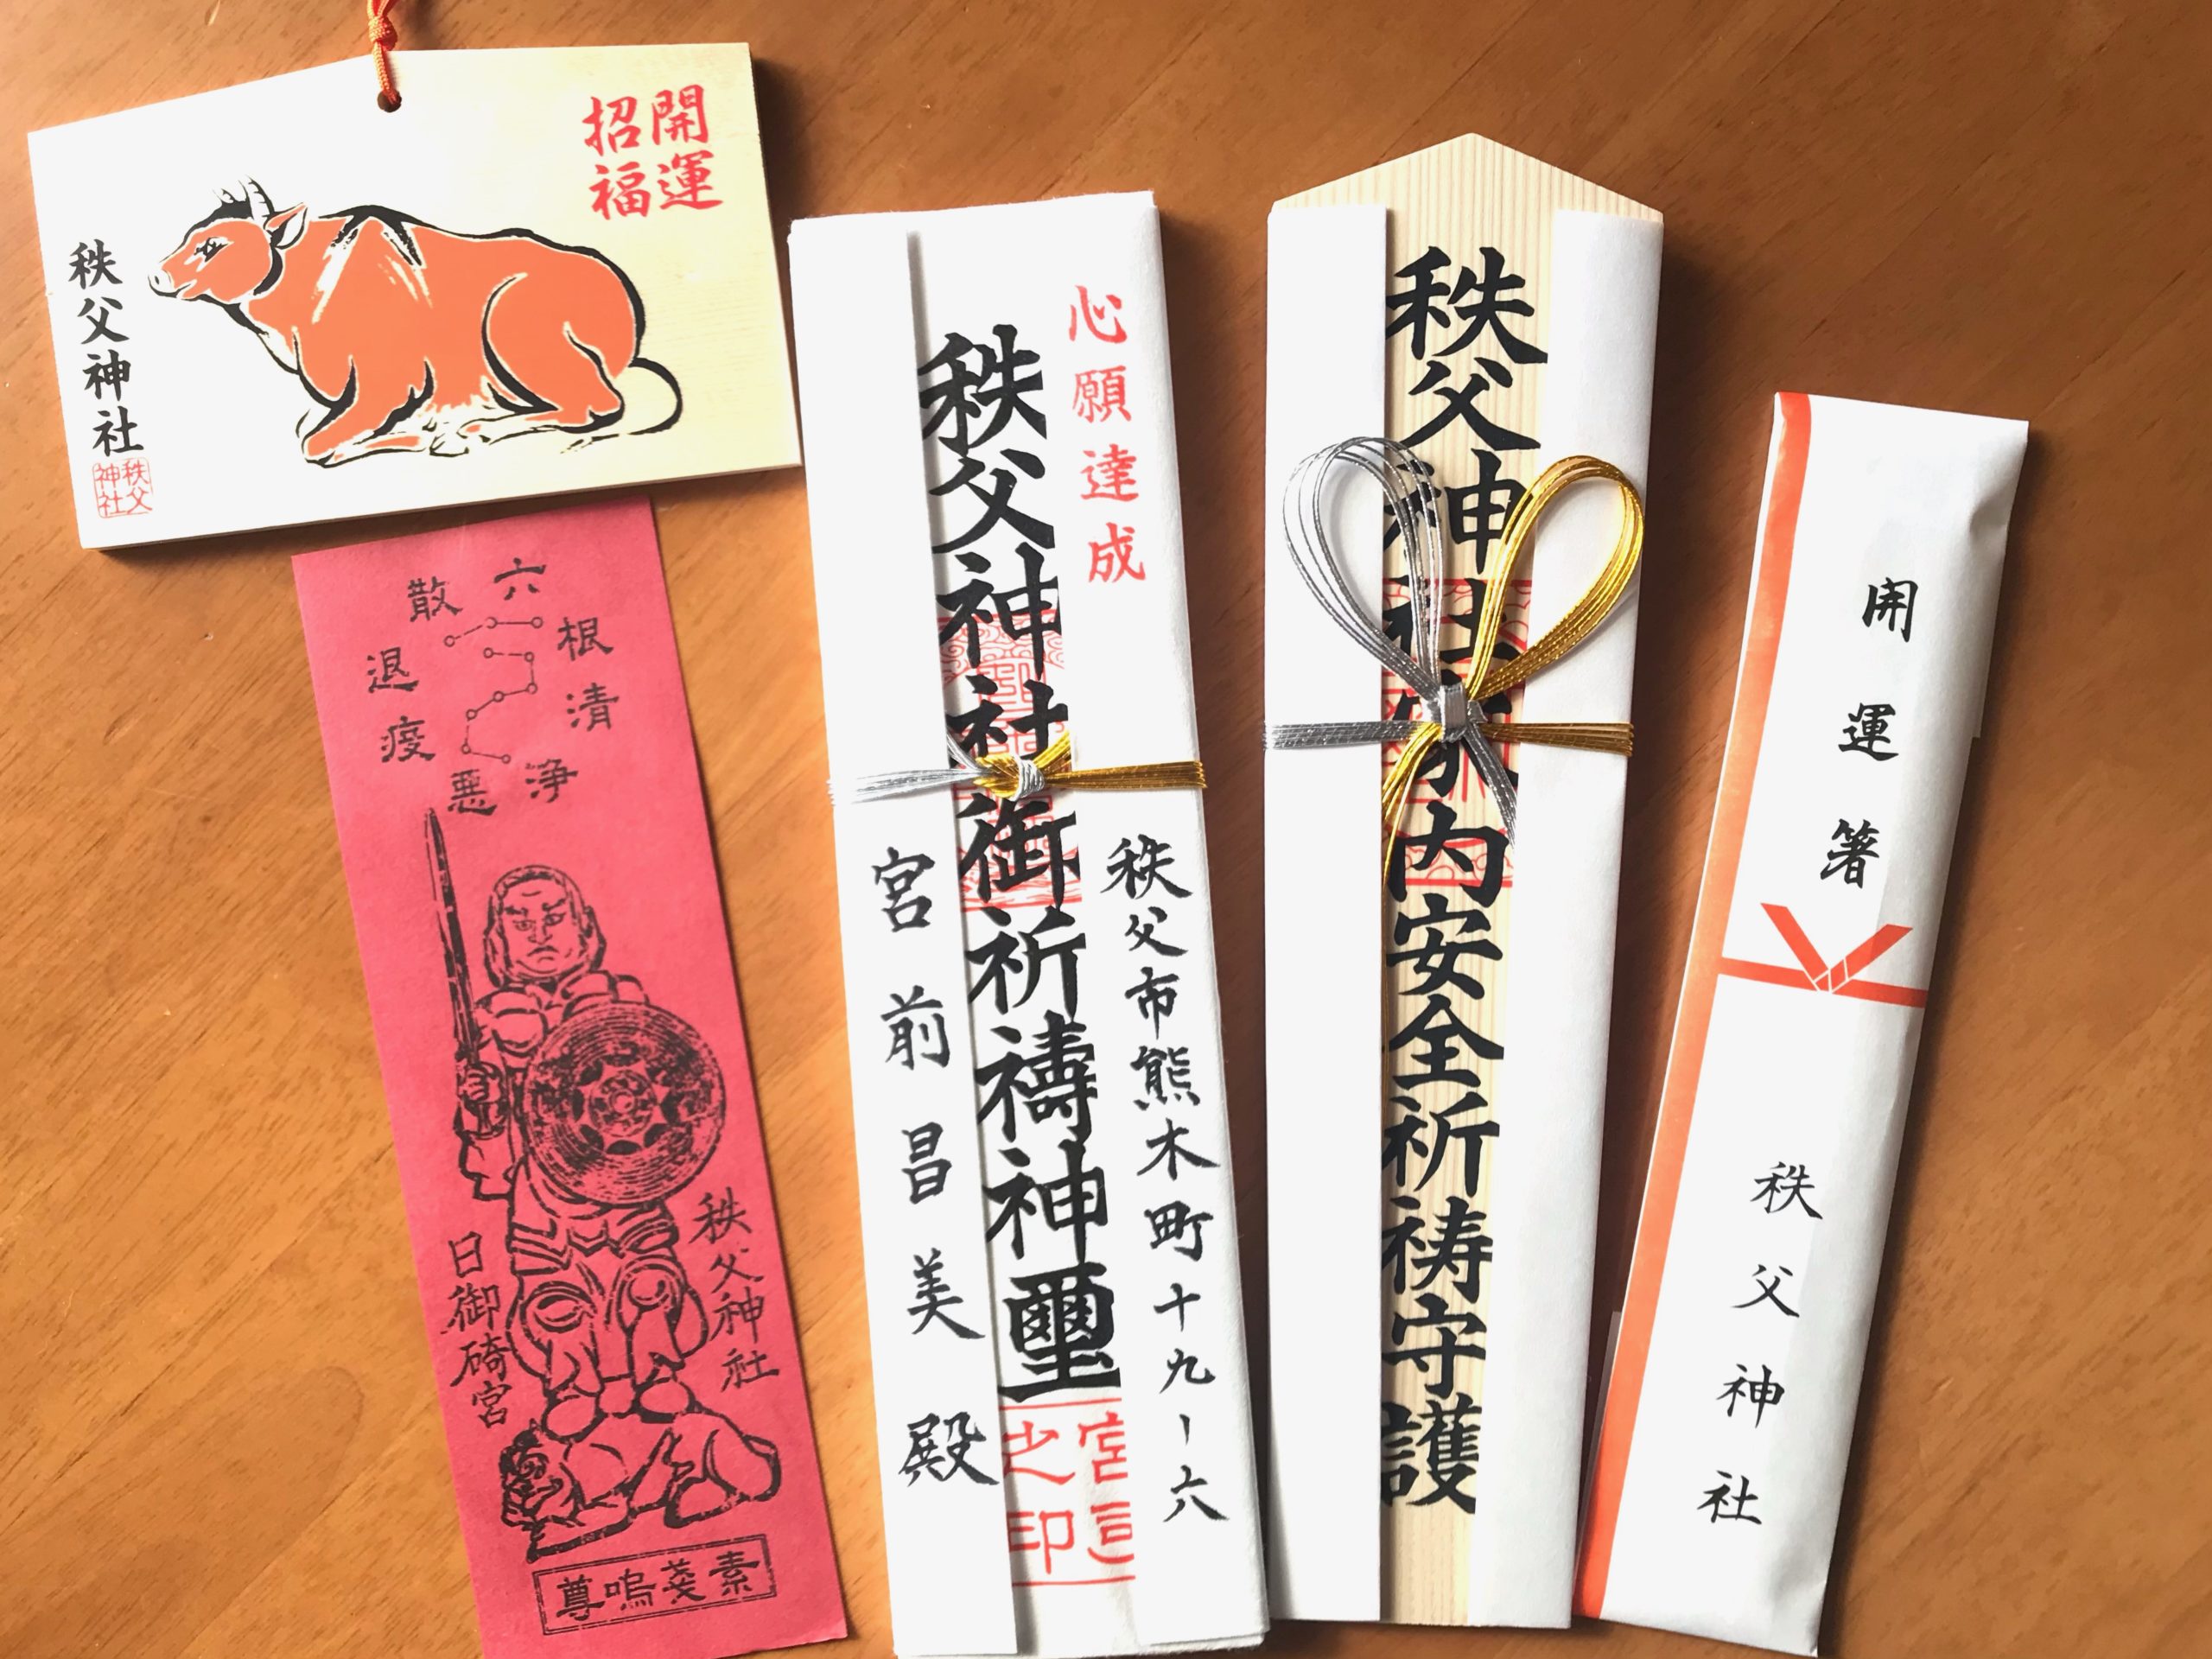 開運
招福
秩父神社
秩父
神社
六根清浄
悪疫退散
秩父神社
日御碕宮
素戔嗚尊
心願達成
秩父神社御祈禱神璽
秩父市熊木町十九ー六
宮前昌美殿
之印
秩父神社家内安全祈祷守護
開運箸
秩父神社